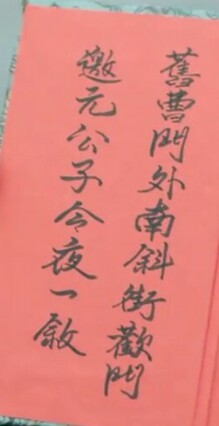 舊曹門外南斜街歡門
邀元公子今夜一敘